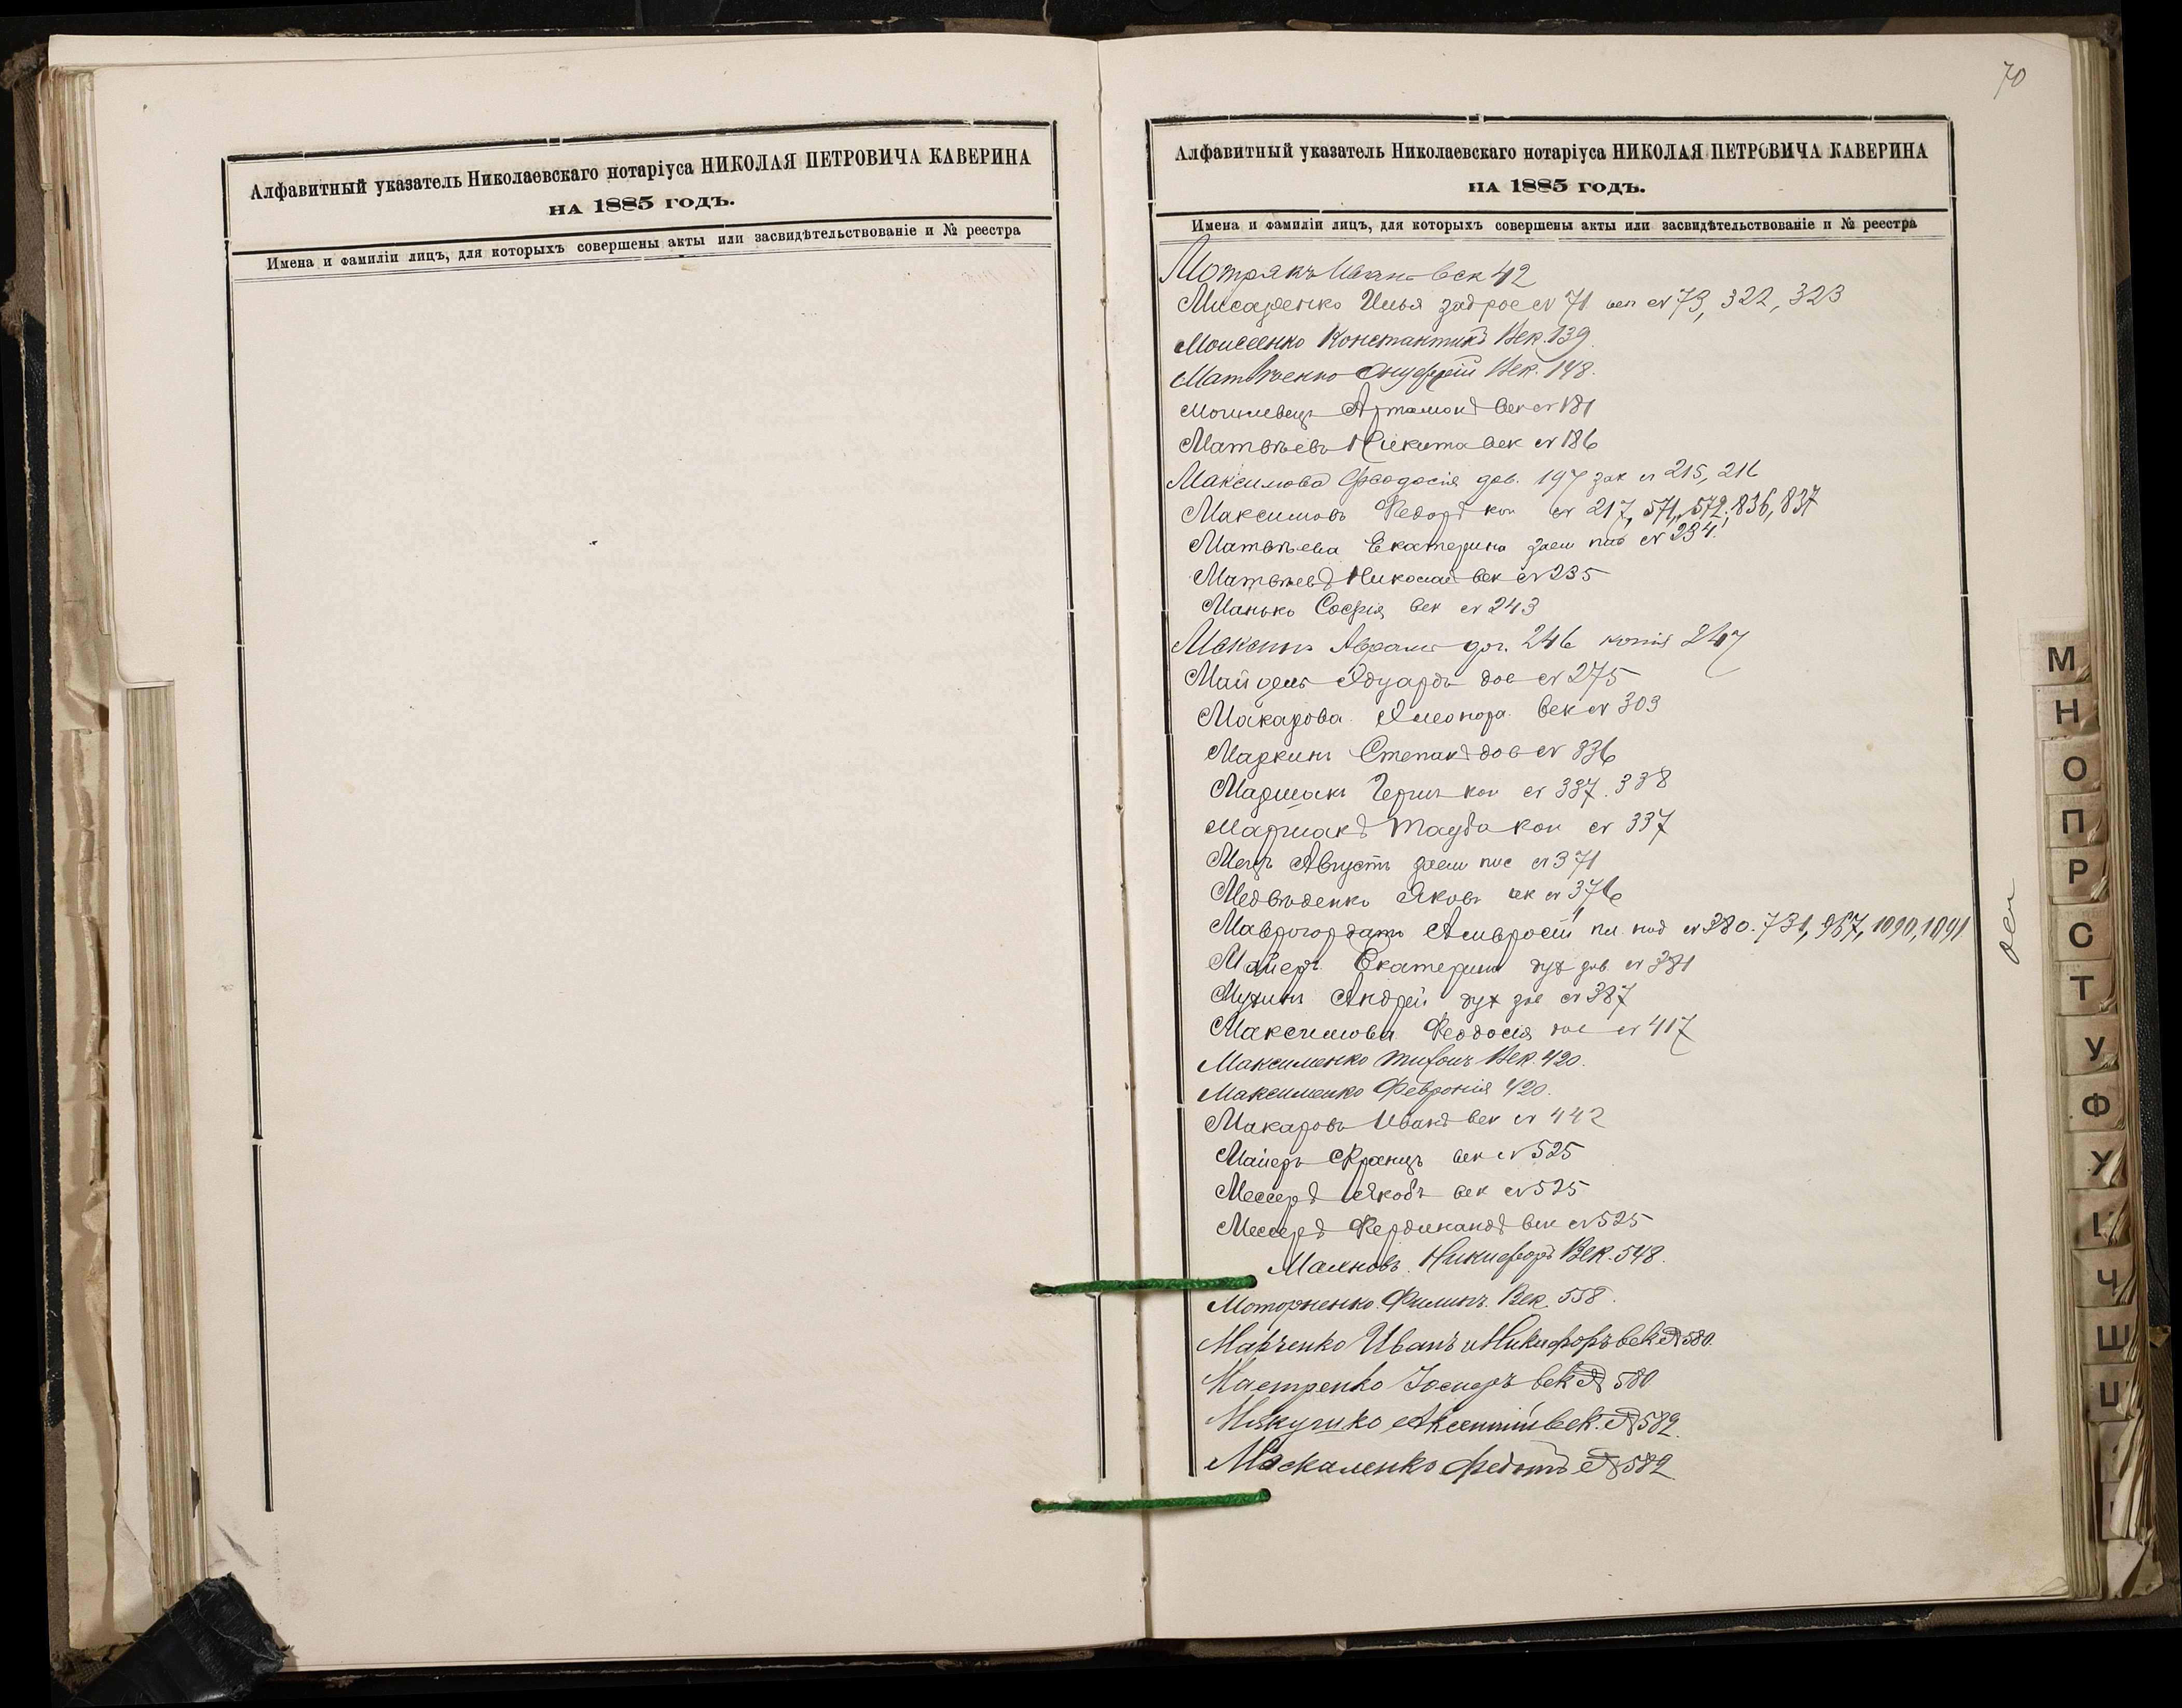 Алфавитный указатель Николаевскаго нотаріуса НИКОЛАЯ ПЕТРОВИЧА КАВЕРИНА
НА 1885 ГОДЪ.
Имена и фамиліи лицъ, для которыхъ совершены акты или засвидѣтельствованіе и № реестра
70
Алфавитный указатель Николаевскаго нотаріуса НИКОЛАЯ ПЕТРОВИЧА КАВЕРИНА
НА 1885 ГОДЪ.
Имена и фамиліи лицъ, для которыхъ совершены акты или засвидѣтельствованіе и № реестра
Мотрякъ Иванъ век 42
Илья № 71 № 73, 322, 323
Моисеенко Константинъ Век. 139.
Матвѣенко Онуфрій Век. 148.
Артамонъ век № 181
Матвѣевъ Никита век № 186
Максимова Феодосія дов. 197 зак № 215, 216
Максимовъ Федоръ коп № 217, 571, 572, 836, 837
Матвѣева Екатерина заем № 234.
Матвѣевъ Николай век № 235
Манько Софія век № 243
Абрамъ 246 копія 247
Эдуардъ дов № 275
Макарова Элеонора век № 303
Маркинъ Степанъ дов № 336
Маршакъ Герш коп № 337. 338
Маршакъ Тауба коп № 337
Августъ заем № 371
Медвѣденко Яковъ век № 376
Маврогордато Амвросій № 380. 731, 967, 1090, 1091
Майеръ Екатерина дух № 381
Мухинъ Андрей дух № 387
Максимова Феодосія № 417
Максименко Тифонъ Век. 420.
Максименко Февронія 420.
Макаровъ Иванъ век № 442
Майеръ Францъ век № 525
Мессеръ Якобъ век № 525
Мессеръ Фердинандъ век № 525
Никифоръ Век. 548.
Моторненко Филипъ. Век. 558.
Марченко Иванъ и Никифоръ век № 580.
Іосифъ век № 580
век. № 582.
Москаленко Федотъ № 582
М
Н
О
П
Р
С
Т
У
Ф
Х
Ц
Ч
Ш
Щ